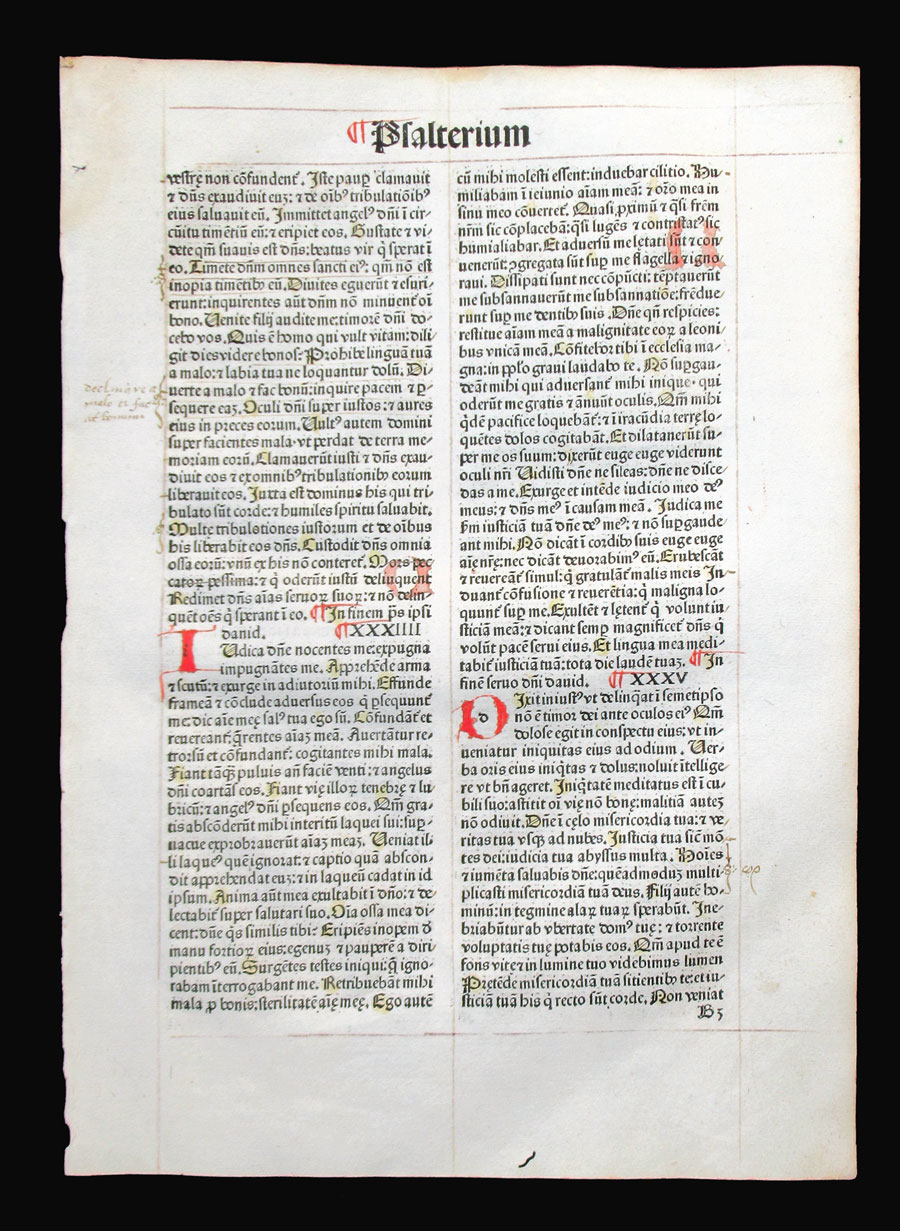 ¶ Psalterium
vestrę non cōfundentᷣ. Iste paup̱ clamauit
⁊ dn̄s exaudiuit euꝫ: ⁊ de oībꝰ tribulatiōibꝰ
eius saluauit eū. Immittet angelꝰ dn̄i ī cir-
cūitu timētiū eū: ⁊ eripiet eos. Gustate ⁊ vi-
dete qm̄ suauis est dn̄s: beatus vir q̇ sperat ī
eo. Timete dn̄m omnes sancti eiꝰ: qm̄ nō est
inopia timētibꝰ eū. Diuites eguerūt ⁊ esuri-
erunt: inquirentes aūt dn̄m nō minuentᷣ oī
bono. Uenite filij audite me: timorē dn̄i do-
cebo vos. Quis ē homo qui vult vitam: dili
git dies videre bonos: Prohibe linguā tuā
a malo: ⁊ labia tua ne loquantur dolū. Di-
uerte a malo ⁊ fac bonū: inquire pacem ⁊ ꝑ-
sequere eaꝫ. Oculi dn̄i super iustos: ⁊ aures
eius in preces eorum. Uultꝰ autem domini
super facientes mala: vt perdat de terra me-
moriam eorū. Clamauerūt iusti ⁊ dn̄s exau-
diuit eos ⁊ ex omnibꝰ tribulationibꝰ eorum
liberauit eos. Juxta est dominus his qui tri-
bulato sūt corde: ⁊ humiles spiritu saluabit.
Multe tribulationes iustorum et de oībus
his liberabit eos dn̄s. Custodit dn̄s omnia
ossa eorū: vnū ex his nō conteretᷣ. Mors pec
catoꝝ pessima: ⁊ q̇ oderūt iustū delinquent
Redimet dn̄s aīas seruoꝝ suoꝝ: ⁊ nō delin-
quēt oēs q̇ sperant ī eo. ¶ In finem p̄s ipsi
dauid. ¶ XXXIIII
IUdica dn̄e nocentes me: expugna
impugnātes me. Apprehēde arma
⁊ scutū: ⁊ exurge in adiutoriū mihi. Effunde
frameā ⁊ cōclude aduersus eos q̇ ꝑsequunt
me: dic aīe meę salꝰ tua ego sū. Cōfundātᷣ et
reuereantᷣ: q̄rentes aīaꝫ meā. Auertātur re-
trorsū: et cōfundantᷣ: cogitantes mihi mala.
Fiant tāq̄ꝫ puluis an̄ faciē venti: ⁊ angelus
dn̄i coartās eos. Fiant vię illoꝝ tenebrę ⁊ lu
bricū: ⁊ angelꝰ dn̄i ꝑsequens eos. Qm̄ gra-
tis abscōderūt mihi interitū laquei sui: sup̱-
uacue exprobrauerūt aīaꝫ meaꝫ. Ueniat il-
li laqueꝰ quē ignorat: ⁊ captio quā abscon-
dit apprehendat euꝫ: ⁊ in laqueū cadat in id
ipsum. Anima aūt mea exultabit ī dn̄o: ⁊ de-
lectabitᷣ super salutari suo. Oīa ossa mea di-
cent: dn̄e q̇s similis tibi: Eripiēs inopem ď
manu fortioꝝ eius: egenuꝫ ⁊ pauperē a diri
pientibꝰ eū. Surgētes testes iniqui: q̄ igno-
rabam īterrogabant me. Retribuebāt mihi
mala ꝓ bonis: sterilitatē aīę meę. Ego autē
cū mihi molesti essent: induebar cilitio. Hu-
miliabam ī ieiunio aīam meā: ⁊ orō mea in
sinu meo cōuertetᷣ. Quasi ꝓximū ⁊ q̄si frēm
nr̄m sic cōplacebā: q̄si lugēs ⁊ contristatꝰ sic
humialiabar. Et aduersū me lętati sūt ⁊ con
uenerūt: ꝯgregata sūt sup̱ me flagella ⁊ igno
raui. Dissipati sunt nec cōpūcti: tēptauerūt
me subsannauerūt me subsannatiōe: frēdue-
runt sup̱ me dentibꝰ suis. Dn̄e qn̄ respicies:
restitue aīam meā a malignitate eoꝝ a leoni
bus vnicā meā. Cōfitebor tibi ī ecclesia ma-
gna: in pp̄lo graui laudabo te. Nō sup̱gau-
deāt mihi qui aduersantᷣ mihi inique: qui
oderūt me gratis ⁊ ānuūt oculis. Qm̄ mihi
q̇dē pacifice loquebātᷣ: ⁊ ī iracūdia terrę lo-
quētes dolos cogitabāt. Et dilatauerūt su-
per me os suum: dixerūt euge euge viderunt
oculi nr̄i Uidisti dn̄e ne sileas: dn̄e ne disce
das a me. Exurge et intēde iudicio meo deꝰ
meus: ⁊ dn̄s meꝰ ī causam meā. Judica me
ẜm iusticiā tuā dn̄e deꝰ meꝰ: ⁊ nō sup̱gaude
ant mihi. Nō dicāt ī cordibꝰ suis euge euge
aīę nr̄ę: nec dicant deuorabimꝰ eū. Erubescāt
⁊ reuereātᷣ simul: q̇ gratulātᷣ malis meis In-
duantᷣ cōfusione ⁊ reuerētia: q̇ maligna lo-
quuntᷣ sup̱ me. Exultēt ⁊ lętentᷣ q̇ volunt iu-
sticiā meā: ⁊ dicant semp̱ magnificetᷣ dn̄s q̇
volūt pacē serui eius. Et lingua mea medi-
tabitᷣ iusticiā tuā: tota die laudē tuaꝫ. ¶ In
finē seruo dn̄i dauid. ¶ XXXV
DIxit iniustꝰ vt delinq̄t ī semetipso
nō ē timor dei ante oculos eiꝰ Qm̄
dolose egit in conspectu eius: vt in-
ueniatur iniquitas eius ad odium. Uer-
ba oris eius iniq̇tas ⁊ dolus: noluit ītellige
re vt bn̄ ageret. Iniq̇tatē meditatus est ī cu-
bili suo: astitit oī vię nō bonę: malitiā auteꝫ
nō odiuit. Dn̄e ī cęlo misericordia tua: ⁊ ve-
ritas tua vsq̄ꝫ ad nubes. Justicia tua sic̄ mō
tes dei: iudicia tua abyssus multa. Hoīes
⁊ iumēta saluabis dn̄e: quēadmoduꝫ multi
plicasti misericordiā tuā deus. Filij autē ho-
minū: in tegmine alaꝝ tuaꝝ sperabūt. Ine-
briabūtur ab vbertate domꝰ tuę: ⁊ torrente
voluptatis tuę potabis eos. Qm̄ apud te ē
fons vitę: ⁊ in lumine tuo videbimus lumen
Pretēde misericordiā tuā sitientibꝰ te: et iu-
sticiā tuā his q̇ recto sūt corde. Non veniat
B3
declinare a
malo et fac